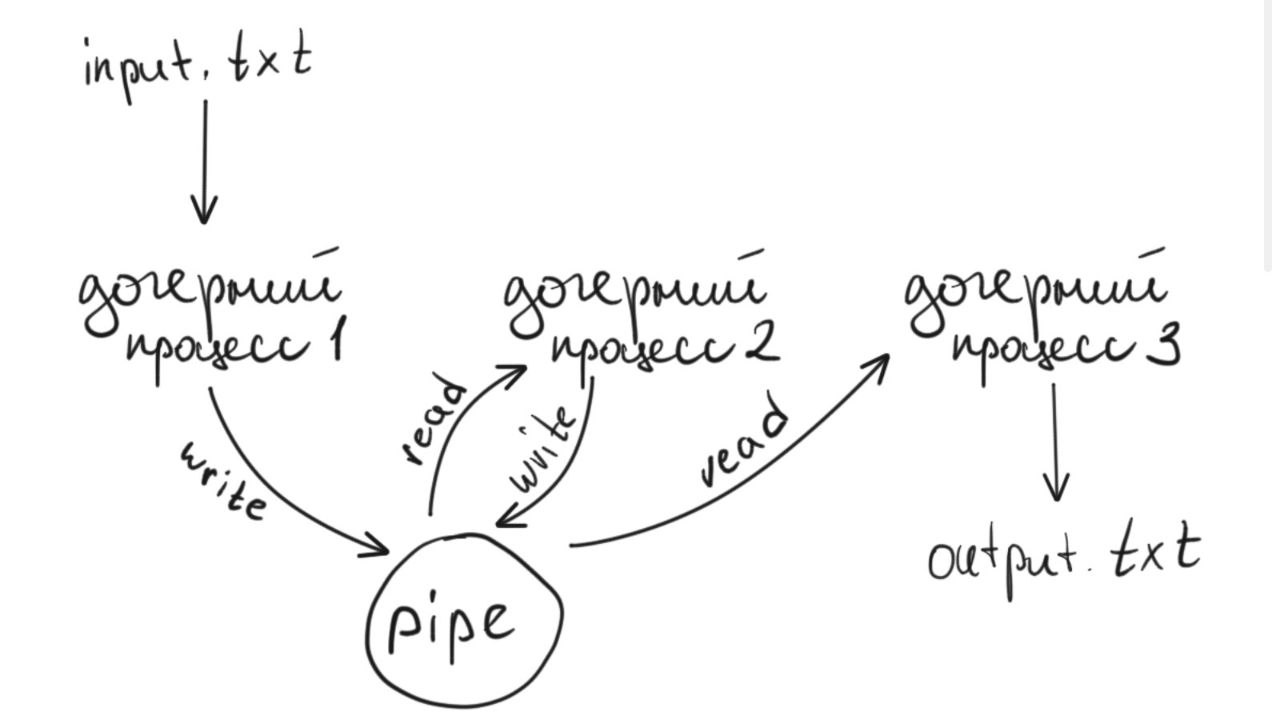 input.txt
дочерний
процесс 1
дочерний
процесс 2
дочерний
процесс 3
write
read
write
read
pipe
output.txt